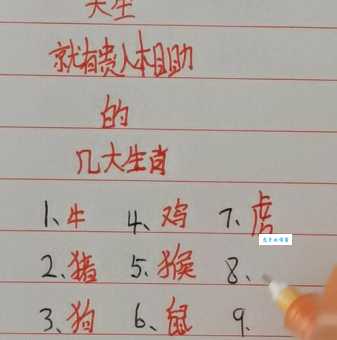 天生
就有贵人相助
的
几大生肖
1、牛 4、鸡 7、虎
2、猪 5、猴 8、
3、狗 6、鼠 9.